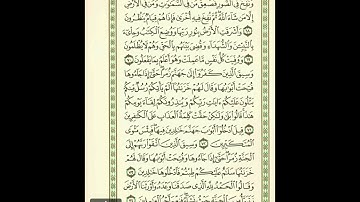 وَنُفِخَ فِي الصُّورِ فَصَعِقَ مَن فِي السَّمَٰوَٰتِ وَمَن فِي الْأَرْضِ
إِلَّا مَن شَاءَ اللَّهُ ثُمَّ نُفِخَ فِيهِ أُخْرَىٰ فَإِذَا هُمْ قِيَامٌ يَنظُرُونَ
وَأَشْرَقَتِ الْأَرْضُ بِنُورِ رَبِّهَا وَوُضِعَ الْكِتَٰبُ وَجِا۟يٓءَ
بِالنَّبِيِّـۧنَ وَالشُّهَدَاءِ وَقُضِيَ بَيْنَهُم بِالْحَقِّ وَهُمْ لَا يُظْلَمُونَ
٦٩ وَوُفِّيَتْ كُلُّ نَفْسٍ مَّا عَمِلَتْ وَهُوَ أَعْلَمُ بِمَا يَفْعَلُونَ ٧٠
وَسِيقَ الَّذِينَ كَفَرُوا إِلَىٰ جَهَنَّمَ زُمَرًا حَتَّىٰ إِذَا جَاءُوهَا
فُتِحَتْ أَبْوَٰبُهَا وَقَالَ لَهُمْ خَزَنَتُهَا أَلَمْ يَأْتِكُمْ رُسُلٌ مِّنكُمْ
يَتْلُونَ عَلَيْكُمْ ءَايَٰتِ رَبِّكُمْ وَيُنذِرُونَكُمْ لِقَاءَ يَوْمِكُمْ
هَٰذَا قَالُوا بَلَىٰ وَلَٰكِنْ حَقَّتْ كَلِمَةُ الْعَذَابِ عَلَى الْكَٰفِرِينَ
٧١ قِيلَ ادْخُلُوا أَبْوَٰبَ جَهَنَّمَ خَٰلِدِينَ فِيهَا فَبِئْسَ مَثْوَى
الْمُتَكَبِّرِينَ ٧٢ وَسِيقَ الَّذِينَ اتَّقَوْا رَبَّهُمْ إِلَى
الْجَنَّةِ زُمَرًا حَتَّىٰ إِذَا جَاءُوهَا وَفُتِحَتْ أَبْوَٰبُهَا وَقَالَ لَهُمْ
خَزَنَتُهَا سَلَٰمٌ عَلَيْكُمْ طِبْتُمْ فَادْخُلُوهَا خَٰلِدِينَ ٧٣
وَقَالُوا الْحَمْدُ لِلَّهِ الَّذِي صَدَقَنَا وَعْدَهُ وَأَوْرَثَنَا الْأَرْضَ
نَتَبَوَّأُ مِنَ الْجَنَّةِ حَيْثُ نَشَاءُ فَنِعْمَ أَجْرُ الْعَٰمِلِينَ ٧٤